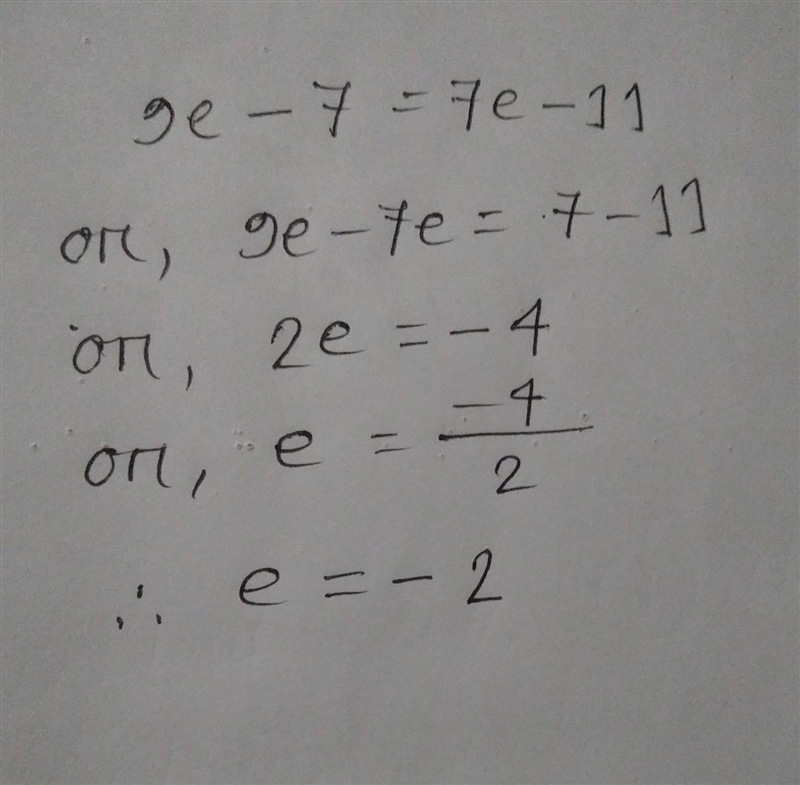 9e - 7 = 7e - 11
or, 9e - 7e = 7 - 11
or, 2e = - 4
or, e = -4/2
∴ e = - 2